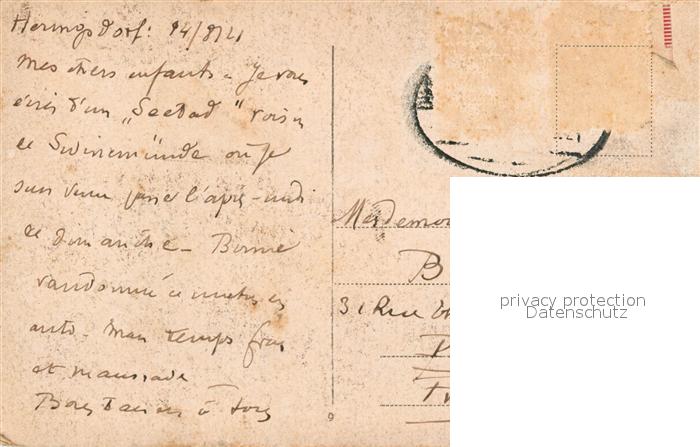 Heringsdorf: 14/8/21
Mes chers enfants - Je vous
écris d'un „Seebad" voisin
de Swinemünde où je
suis venu passer l'après-midi
de dimanche - Bonne
randonnée ce matin en
auto. Mais temps frais
et maussade
Bons baisers à tous
31 Rue
9
privacy protection
Datenschutz